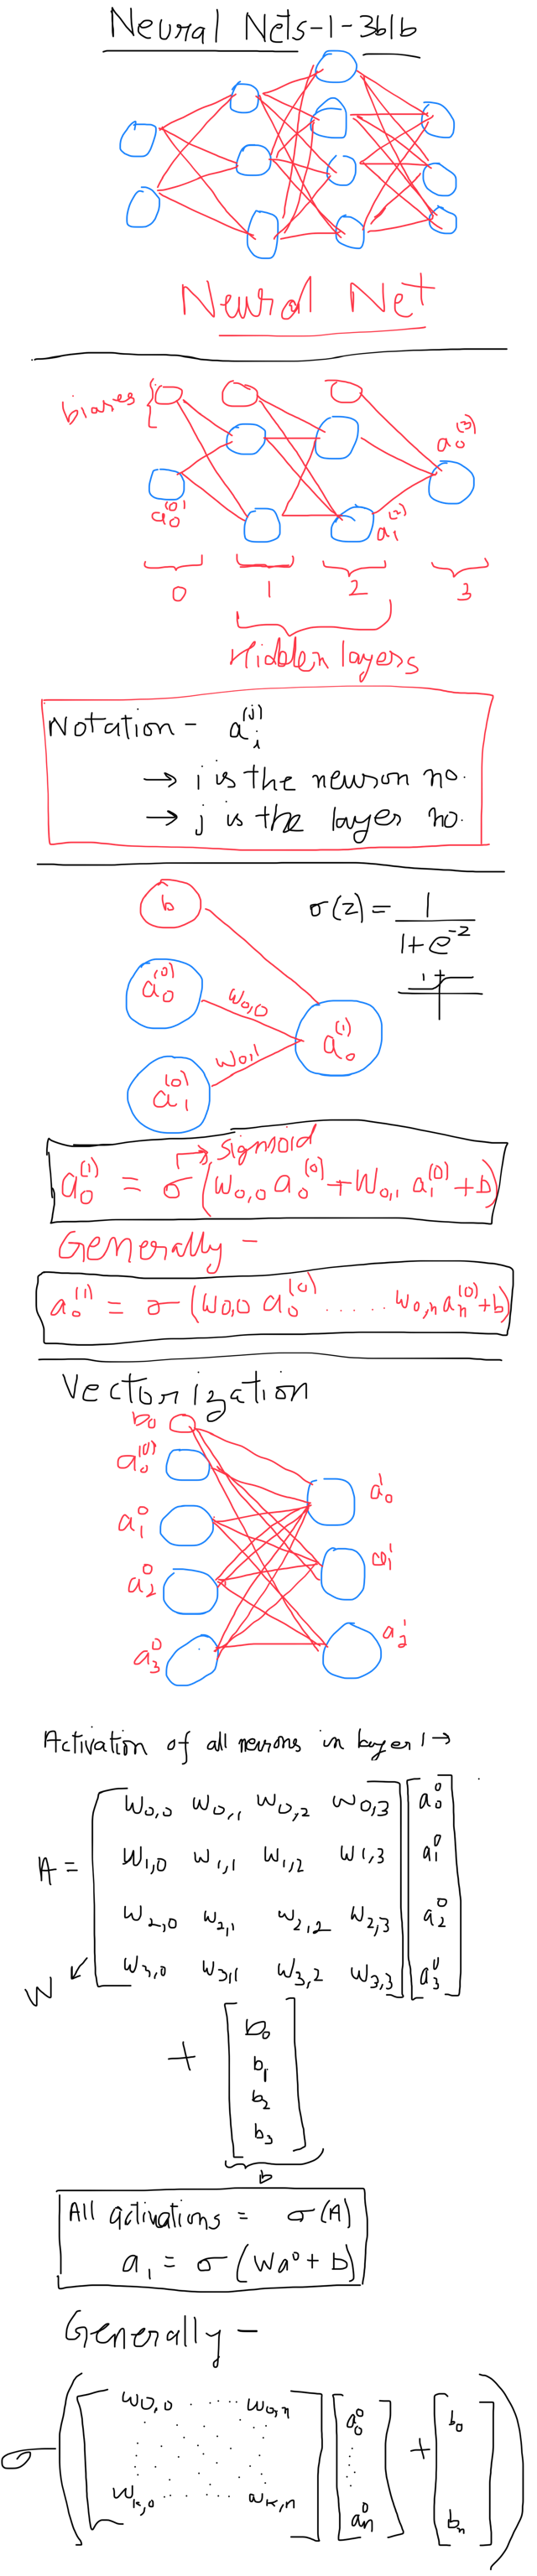 Neural Nets-1-3b1b
Neural Net
biases
a₀⁽³⁾
a₀⁽⁰⁾
a₁⁽²⁾
0 1 2 3
Hidden layers
Notation - aᵢ⁽ʲ⁾
→ i is the neuron no.
→ j is the layer no.
b
σ(z) = 1/(1+e^-z)
1
a₀⁽⁰⁾
w₀,₀
a₀⁽¹⁾
w₀,₁
a₁⁽⁰⁾
→ sigmoid
a₀⁽¹⁾ = σ(w₀,₀ a₀⁽⁰⁾ + w₀,₁ a₁⁽⁰⁾ + b)
Generally -
a₀⁽¹⁾ = σ(w₀,₀ a₀⁽⁰⁾ ...... w₀,ₙ aₙ⁽⁰⁾ + b)
Vectorization
b₀
a₀⁽⁰⁾
a₀¹
a₁⁰
a₁¹
a₂⁰
a₂¹
a₃⁰
Activation of all neurons in layer 1 →
w₀,₀ w₀,₁ w₀,₂ w₀,₃ a₀⁰
A = w₁,₀ w₁,₁ w₁,₂ w₁,₃ a₁⁰
w₂,₀ w₂,₁ w₂,₂ w₂,₃ a₂⁰
w₃,₀ w₃,₁ w₃,₂ w₃,₃ a₃⁰
W
+ b₀
b₁
b₂
b₃
b
All activations = σ(A)
a₁ = σ(Wa⁰ + b)
Generally -
w₀,₀ ..... w₀,ₙ a₀⁰ b₀
σ +
wₖ,₀ ..... wₖ,ₙ aₙ⁰ bₙ